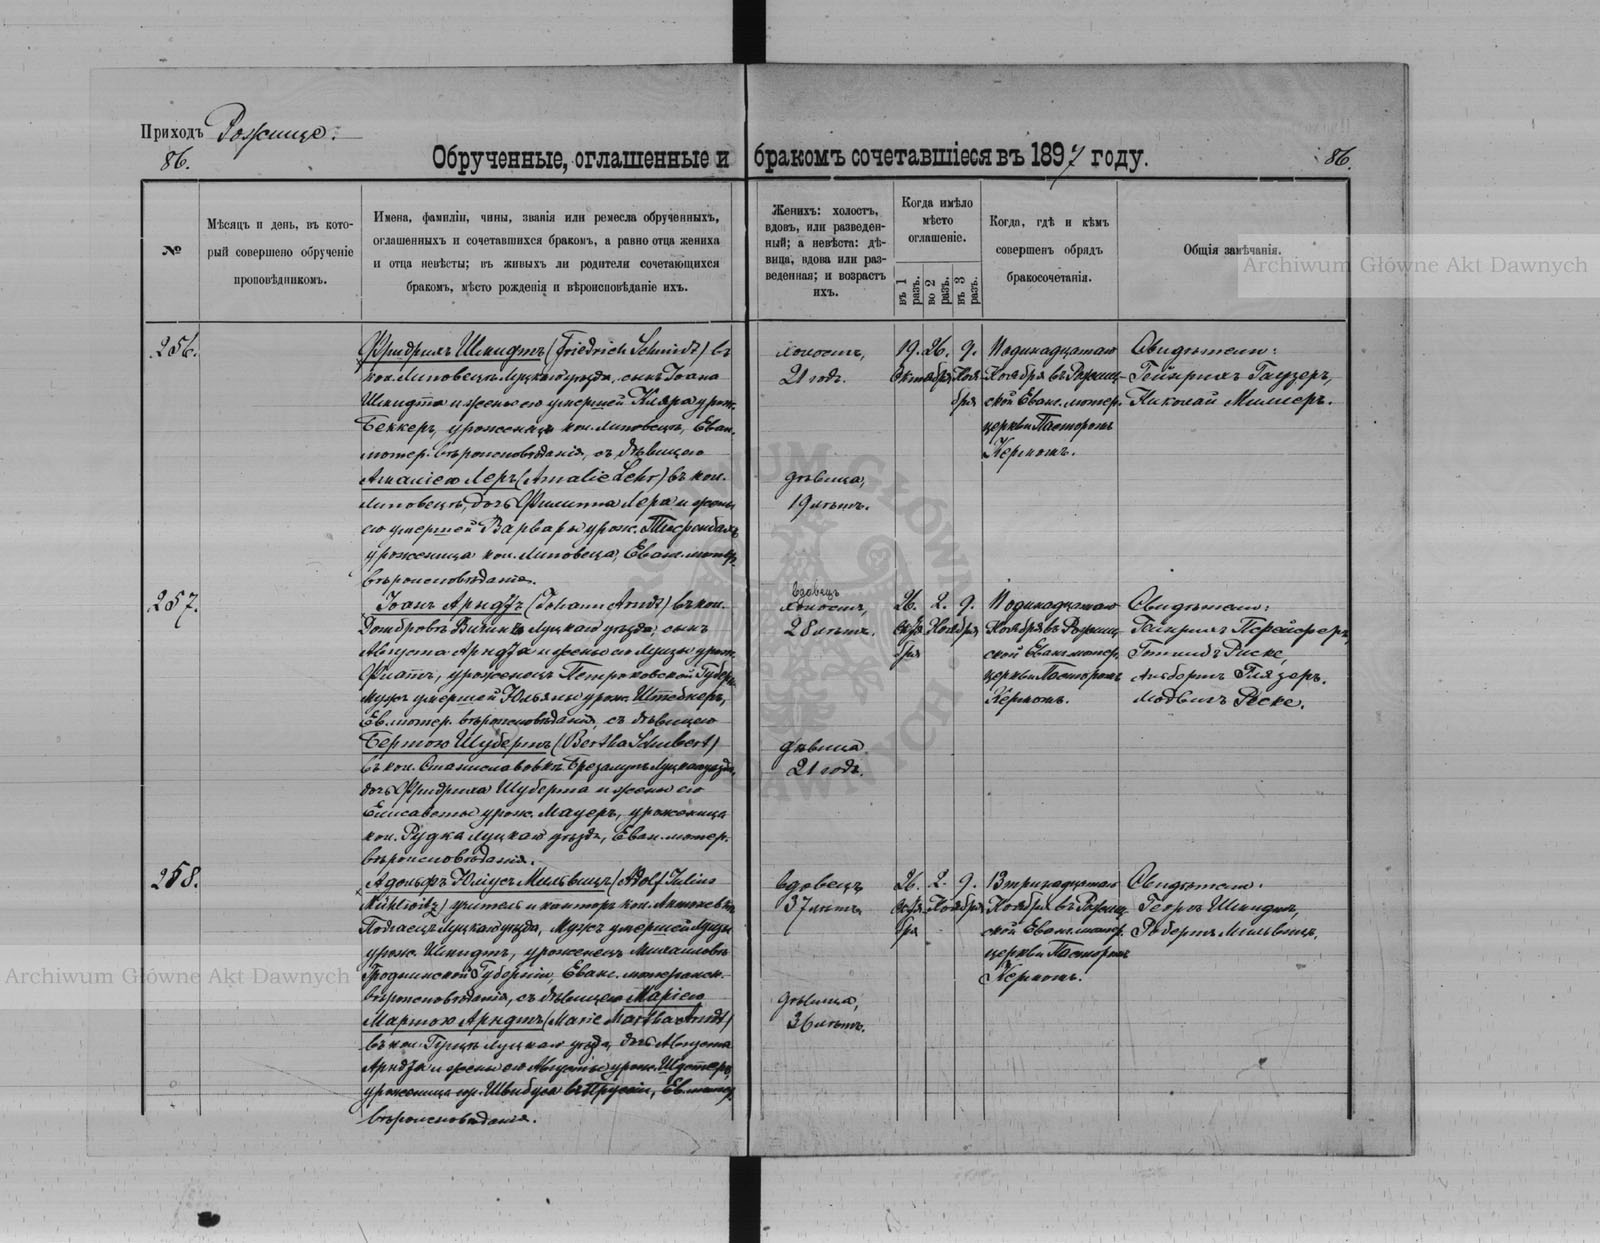 Приходъ Рожище.
86.
Обрученные, оглашенные и бракомъ сочетавшіеся въ 1897 году.
86.
№
Мѣсяцъ и день, въ кото-
рый совершено обрученіе
проповѣдникомъ.
Имена, фамиліи, чины, званія или ремесла обрученныхъ,
оглашенныхъ и сочетавшихся бракомъ, а равно отца жениха
и отца невѣсты; въ живыхъ ли родители сочетающихся
бракомъ, мѣсто рожденія и вѣроисповѣданіе ихъ.
Женихъ: холостъ,
вдовъ, или разведен-
ный; а невѣста: дѣ-
вица, вдова или раз-
веденная; и возрастъ
ихъ.
Когда имѣло
мѣсто
оглашеніе.
въ 1 разъ.
во 2 разъ.
въ 3 разъ.
Когда, гдѣ и кѣмъ
совершенъ обрядъ
бракосочетанія.
Общія замѣчанія.
Archiwum Główne Akt Dawnych
256.
Фридрихъ Шмидтъ (Friedrich Schmidt) въ
кол. Липовецъ Луцкаго уѣзда, сынъ Іоана
Шмидта и жены его умершей Клара урож.
Беккеръ, уроженецъ кол. Липовецъ, Еван.
лютер. вѣроисповѣданія, съ дѣвицею
Амаліею Леръ (Amalie Lehr) въ кол.
Липовецъ, дочь Филиппа Лера и жены
его умершей Варвары урож.
уроженица кол. Липовеца, Еван. лютер.
вѣроисповѣданія.
холостъ,
21 годъ.
дѣвица,
19 лѣтъ.
19. 26. 9.
Октября Ноя-
бря
Одинадцатаго
Ноября въ Рожищ-
ской Еванг. лютер.
церкви Пасторомъ
Кермомъ.
Свидѣтели:
Гейнрихъ Гаузеръ,
Николай Миллеръ.
257.
Іоанъ Арндтъ (Johann Arndt) въ кол.
Домбровѣ Луцкаго уѣзда, сынъ
Августа Арндта и жены его Луизы урож.
уроженецъ Петроковской Губерн.
Мужъ умершей Юльяны урож.
Ев. лютер. вѣроисповѣданія, съ дѣвицею
Бертою Шубертъ (Bertha Schubert)
въ кол. Станиславовкѣ Луцкаго уѣзда,
дочь Фридриха Шуберта и жены его
Елисаветы урож. Мауеръ, уроженица
кол. Рудка Луцкаго уѣзда, Еван. лютер.
вѣроисповѣданія.
вдовецъ
холостъ,
28 лѣтъ.
дѣвица
21 годъ.
26. 2. 9.
Октя- Ноября
бря
Одинадцатаго
Ноября въ Рожищ-
ской Еван. лютер.
церкви Пасторомъ
Кермомъ.
Свидѣтели:
Гейнрихъ Пфейферъ,
Готлибъ Риске,
Альбертъ Глязеръ.
Людвигъ Риске.
258.
Адольфъ Юліусъ Мильвицъ (Adolf Julius
Mühlwitz) учитель и канторъ кол. Антоновки
Луцкаго уѣзда, Мужъ умершей Луизы
урож. Шмидтъ, уроженецъ
Гродненской Губерніи, Еванг. лютеранск.
вѣроисповѣданія, съ дѣвицею Маріею
Мартою Арндтъ (Marie Martha Arndt)
въ кол. Луцкаго уѣзда, дочь Августа
Арндта и жены его Августы урож. Шустеръ,
уроженица гор. Швибуса въ Пруссіи, Ев. лютер.
вѣроисповѣданія.
вдовецъ
37 лѣтъ.
дѣвица,
36 лѣтъ.
26. 2. 9.
Октя- Ноября
бря
Втринадцатаго
Ноября въ Рожищ-
ской Еванг. лютер.
церкви Пасторомъ
Кермомъ.
Свидѣтели:
Георгъ Шмидтъ,
Робертъ Мильвицъ.
Archiwum Główne Akt Dawnych